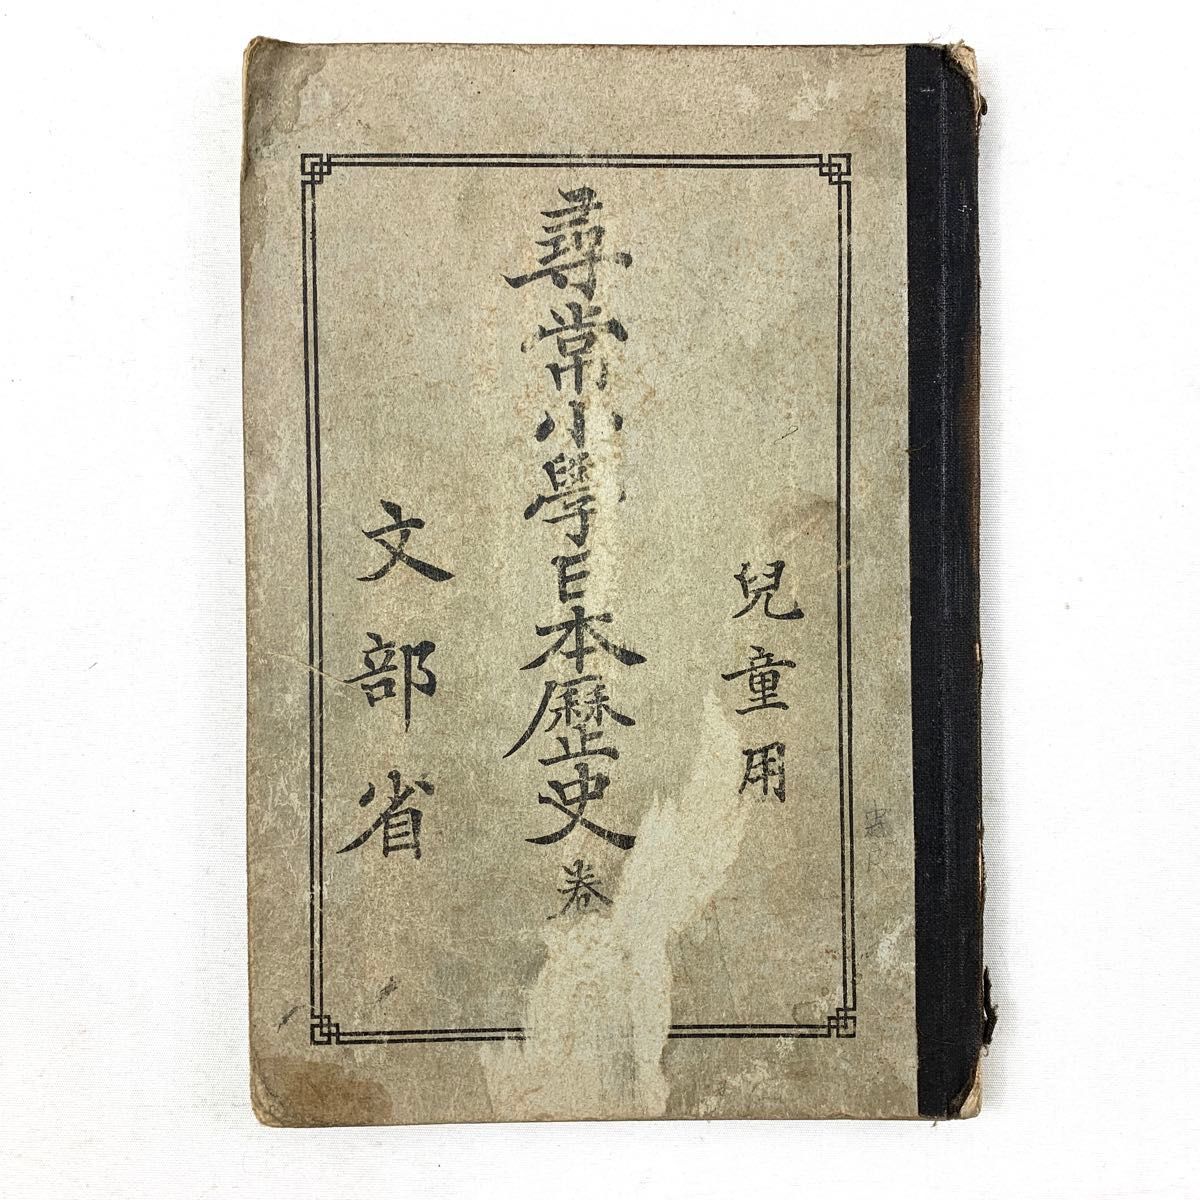 兒童用
尋常小學日本歷史卷
文部省